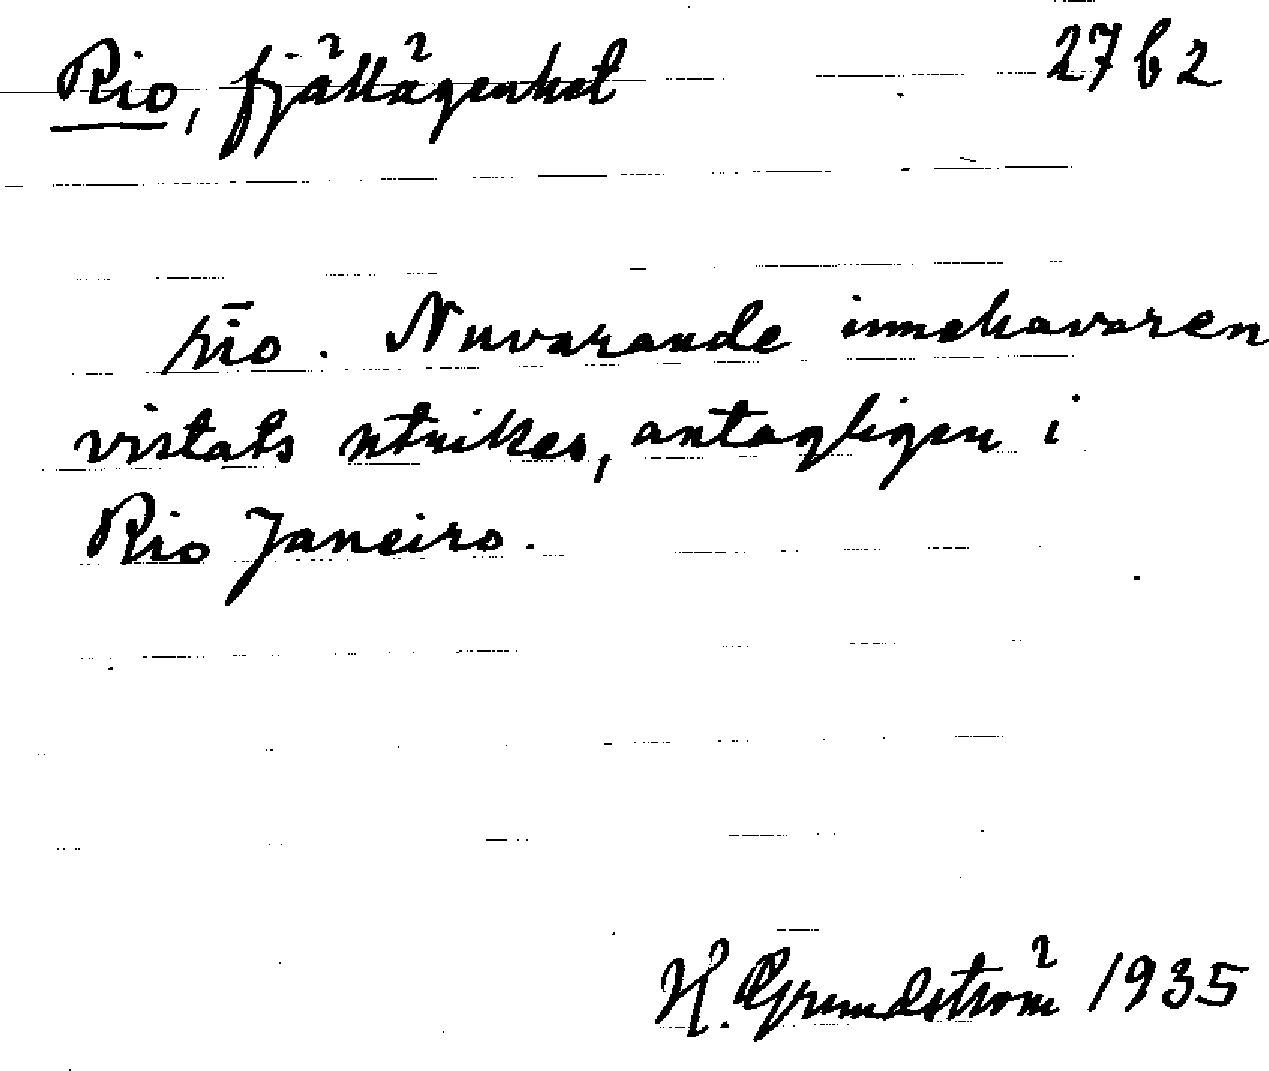 Rio, fjällägenhet 27 b 2
rīo. Nuvarande innehavaren
vistats utrikes, antagligen i
Rio Janeiro.
H. Grundström 1935